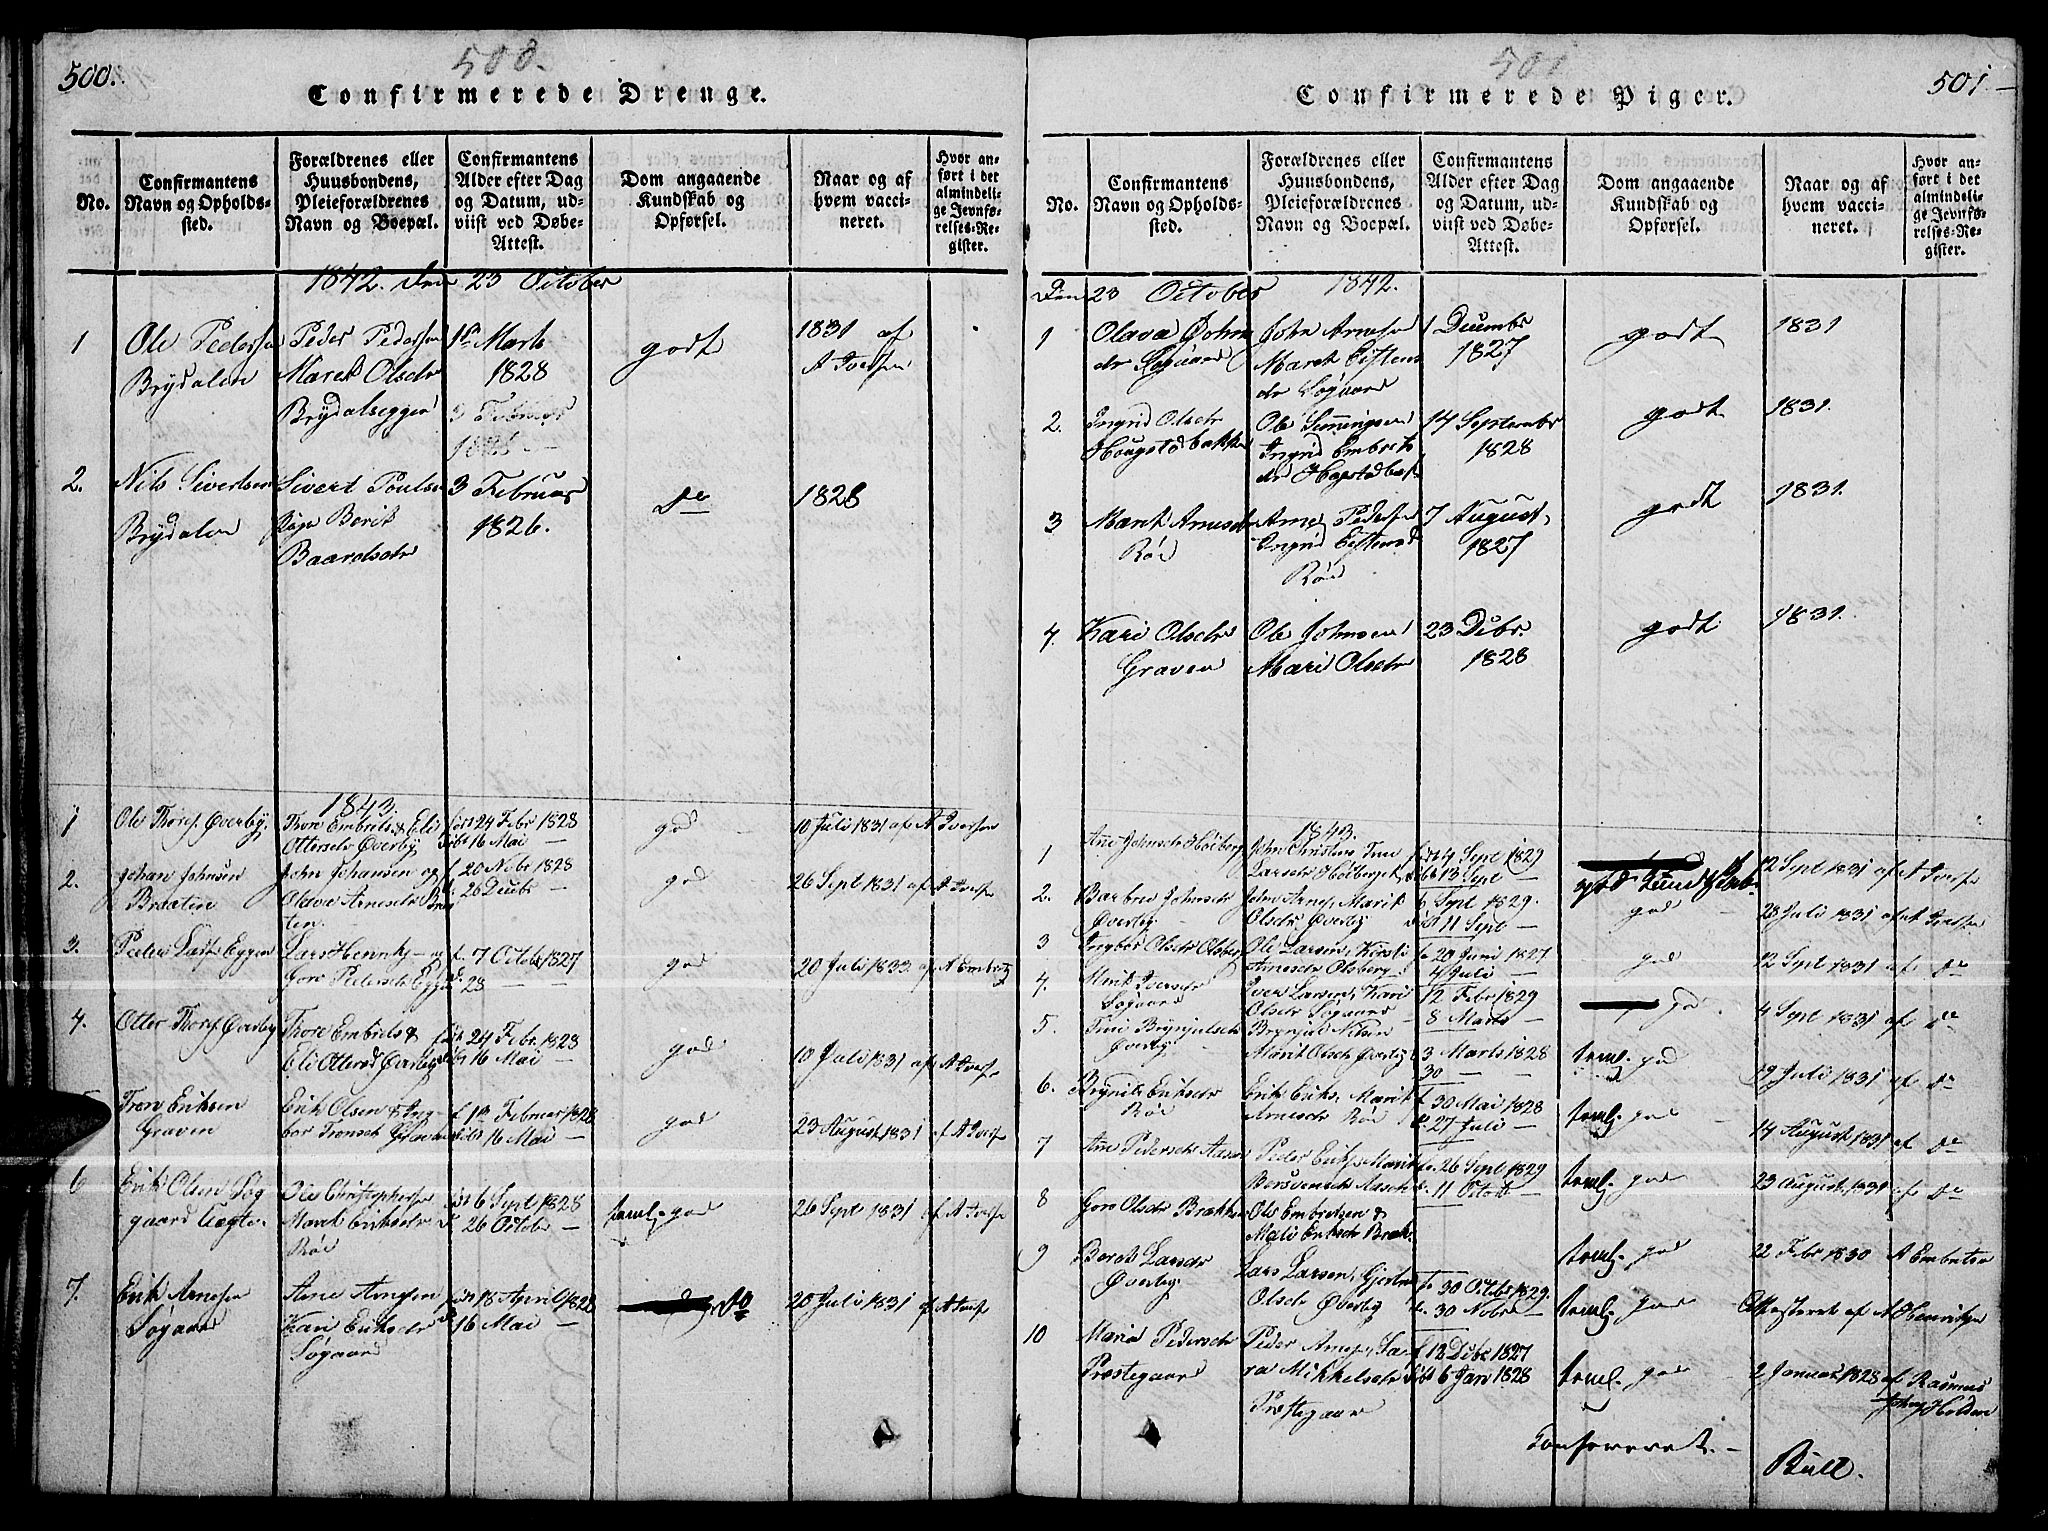 500.
500.
Confirmerede Drenge.
No.
Confirmantens
Navn og Opholds-
sted.
Forældrenes eller
Huusbondens,
Pleieforældrenes
Navn og Boepæl.
Confirmantens
Alder efter Dag
og Datum, ud-
viist ved Døbe-
Attest.
Dom angaaende
Kundskab og
Opførsel.
Naar og af
hvem vacci-
neret.
Hvor an-
ført i det
almindeli-
ge Jevnfø-
relses-Re-
gister.
1842. den 23 October
1
Ole Pedersen
Brydalen
Peder Pedersen
Marek Olsdtr
Brydalseggen
1ste Marts
1828
3 Februar
godt
1831 af
A Iversen
2.
Nils Sivertsen
Brydalen
Sivert Poulsen
Pige Berit
Baardsdtr
3 Februar
1826.
do
1828
1843.
1
Ole Thores. Øverby.
Thore Embrets. & Eli
Ottersdtr Øverby
født 24 Febr 1828
døbt 16 Mai —
god
10 Juli 1831 af A Iversen
2.
Johan Johnsen
Braaten
John Johansen og
Olava Arnesdtr Braa
ten.
f. 20 Novbr 1828
d. 26 Decbr —
god
26 Sept 1831 af A Iversen
3.
Peder Lars. Eggen
Lars Henriks — og
Goro Pedersdtr Eggen
f. 7 Octobr 1827
d. 28 — —
god
20 Juli 1833. af A Embretz
4.
Otter Thores. Øverby
Thore Embrets &
Eli Ottersd Øverby
født 24 Febr. 1828
døbt 16 Mai —
god
10 Juli 1831 af A Iversen
Tron Eriksen
Graven
Erik Olsen & Ing
bor Tronsdtr Graven
f. 1te Februar 1828
døbt 16 Mai —
god
23 August 1831 af A Iversen
6
Erik Olsen Søg
gaard
Ole Christophersen
Marit Eriksdtr
Røe
født 6 Sept 1828
d 26 Octobr —
teml. god
26 Sept 1831 af A Iversen
7.
Erik Arnesen
Søgaard
Arne Arnesen
Kari Eriksdtr
Søgaard
født 18 April 1828
d 16 Mai —
do
20 Juli 1831 af A Iversen
501
501 —
Confirmerede Piger.
No.
Confirmantens
Navn og Opholds-
sted.
Forældrenes eller
Huusbondens,
Pleieforældrenes
Navn og Boepæl.
Confirmantens
Alder efter Dag
og Datum, ud-
viist ved Døbe-
Attest.
Dom angaaende
Kundskab og
Opførsel.
Naar og af
hvem vacci-
neret.
Hvor an-
ført i det
almindeli-
ge Jevnfø-
relses-Re-
gister.
Den 23 October 1842.
1
Olava Johns
dtr Søgaard
John Arnesen
Maret Eistens
dtr Søgaard
1 Decembr
1827
godt
1831
2.
Ingrid Olsdtr
Hougstadbakken
Ole Simmingsen
Ingrid Embrets
dtr Hogstadbak.
14 Septembr
1828
godt
1831.
3
Marit Arnesdtr
Røe
Arne Pedersen
Ingrid Eistensd
Røe
7 August,
1827
godt
1831.
4.
Kari Olsdtr
Graven
Ole Johnsen
Mari Olsdtr
23 Decbr.
1828
godt
1831.
1843.
1
Ane Johnsdtr Holberg
John Christens. Tine
Larsdtr Holberget
født 4 Sept 1829
døbt 13 Sept —
god
12 Sept 1831 af A Iversen
2.
Barbro Johnsdtr
Øverby —
John Arnes, Marit
Olsdtr Øverby
6 Sept 1829.
døbt 11 Sept —
god
28 Juli 1831 af A Iversen
3
Ingbor Olsdtr Olsberg
Ole Larsen, Kirsti
Arnesdtr Olsberg
f. 20 Juni 1827
4 Juli —
god
12 Sept 1831 af do
4.
Marit Iversdtr
Søgaard
Iver Larsen, Kari
Olsdtr Søgaard
12 Febr 1829
8 Marts —
god.
4 Sept 1831 af do
5.
Tine Brynjulsdtr
Øverby
Brynjul Nilsen
Marit Olsdtr Øverby
3 Marts 1828
30 — —
teml. god
19 Juli 1831 af do
6.
Brynild Eriksdtr
Røe
Erik Eriks, Marit
Arnesdtr Røe
f. 30 Mai 1828
d. 27 Juli —
teml. god
14 August 1831 af do
7
Ane Pedersdtr Aasen
Peder Eriks. Marit
Bersvensdtr Aasen
f. 26 Sept 1829
d. 11 Octob —
teml. god
23 August 1831 af do
8
Goro Olsdtr Brækken
Ole Embretsen &
Mali Eriksdtr Bræk.
teml. god
22 Febr 1830 A Embretsen
9
Beret Larsdtr
Øverby
Lars Larsen, Gjertru
Olsdtr Øverby
f. 30 Octobr 1829.
d. 30 Nobr —
teml. god
Attesteret af A Henriksen
10
Maria Pedersdtr
Præstegaard
Peder Arnes., Sa-
ra Mikkelsdtr
Præstegaard
f 12 Decbr 1827
døbt 6 Jan 1828
teml. god
2 Januar 1828 af Rasmus
Johns Holden
Confereret. —
Bull.